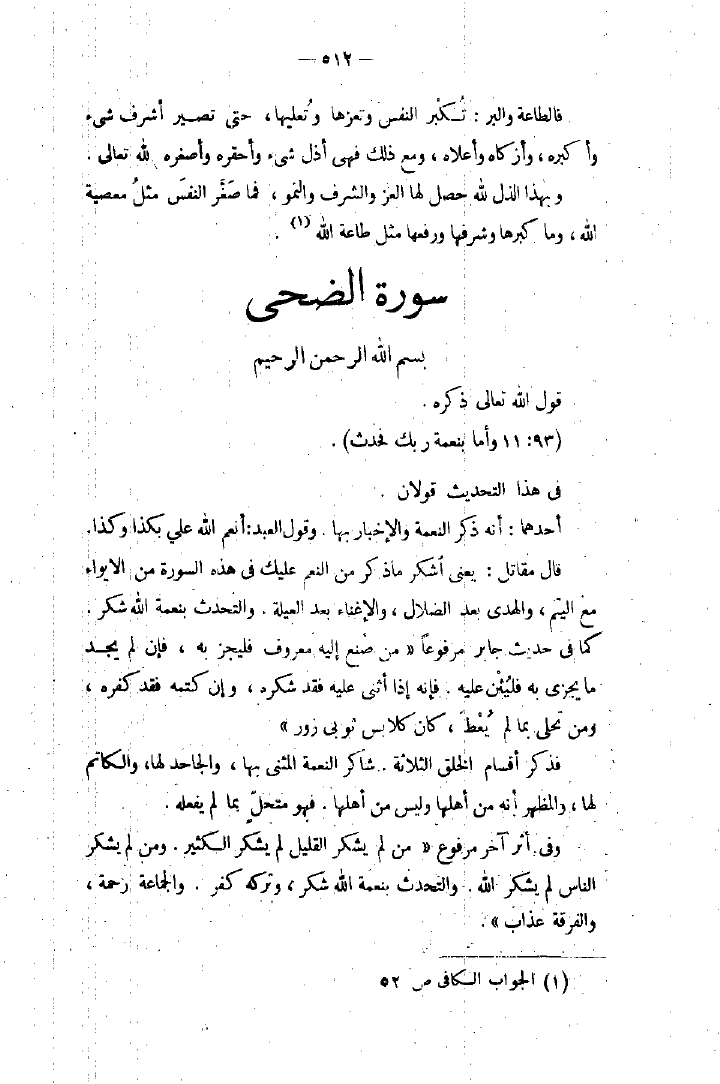 — ٥١٢ —
فالطاعة والبر : تُكبْر النفس وتعزها وتُعليها، حتى تصير أشرف شىء
وأكبره ، وأزكاه وأعلاه ، ومع ذلك فهى أذل شىء وأحقره وأصغره لله تعالى .
وبهذا الذل لله حصل لها العز والشرف والنمو ، فما صَغَّر النفسَ مثلُ معصية
الله ، وما كبرها وشرفها ورفعها مثل طاعة الله (١) .
سورة الضحى
بسم الله الرحمن الرحيم
قول الله تعالى ذكره .
(٩٣: ١١ وأما بنعمة ربك فحدث) .
فى هذا التحديث قولان .
أحدهما : أنه ذكر النعمة والإخبار بها . وقول العبد:أنعم الله علي بكذا وكذا.
قال مقاتل : يعنى أشكر ماذكر من النعم عليك فى هذه السورة من الايواء
مع اليتم ، والهدى بعد الضلال ، والإغناء بعد العيلة . والتحدث بنعمة الله شكر .
كما فى حديث جابر مرفوعاً « من صُنع إليه معروف فليجز به ، فإن لم يجد
ما يجزى به فليُثْن عليه . فإنه إذا أثنى عليه فقد شكره ، وإن كتمه فقد كفره ،
ومن تحلى بما لم يُعْطَ ، كان كلابس ثوبى زور »
فذكر أقسام الخلق الثلاثة . شاكر النعمة المثنى بها ، والجاحد لها، والكاتم
لها ، والمظهر أنه من أهلها وليس من أهلها . فهو متحلّ بما لم يفعله .
وفى أثر آخر مرفوع « من لم يشكر القليل لم يشكر الكثير . ومن لم يشكر
الناس لم يشكر الله . والتحدث بنعمة الله شكر ، وتركه كفر . والجماعة رحمة ،
والفرقة عذاب » .
(١) الجواب الكافى ص ٥٢